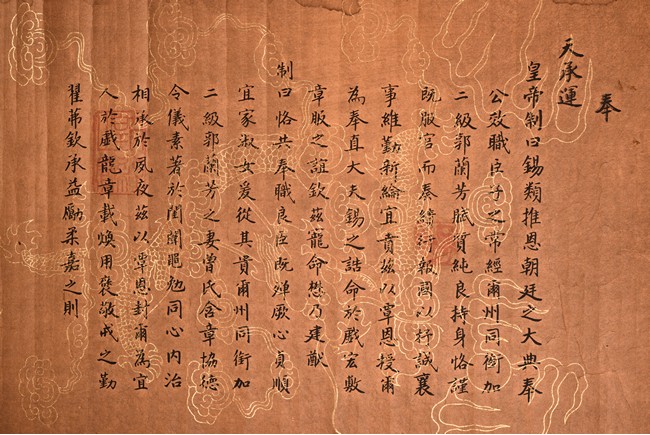 奉
天承運
皇帝制曰錫類推恩朝廷之大典奉
公效職臣子之常經爾州同銜加
二級郭蘭芳賦資純良持身恪謹
既服官而奏績行報國以抒誠襄
事維勤新綸宜賁茲以覃恩授爾
為奉直大夫錫之誥命於戲宏敷
章服之誼欽茲寵命懋乃建猷
制曰恪共奉職良臣既殫厥心貞順
宜家淑女爰從其貴爾州同銜加
二級郭蘭芳之妻曾氏含章協德
令儀素著於閨闈黽勉同心內治
相承於夙夜茲以覃恩封爾為宜
人於戲龍章載煥用褒敬戒之勤
翟茀欽承益勵柔嘉之則